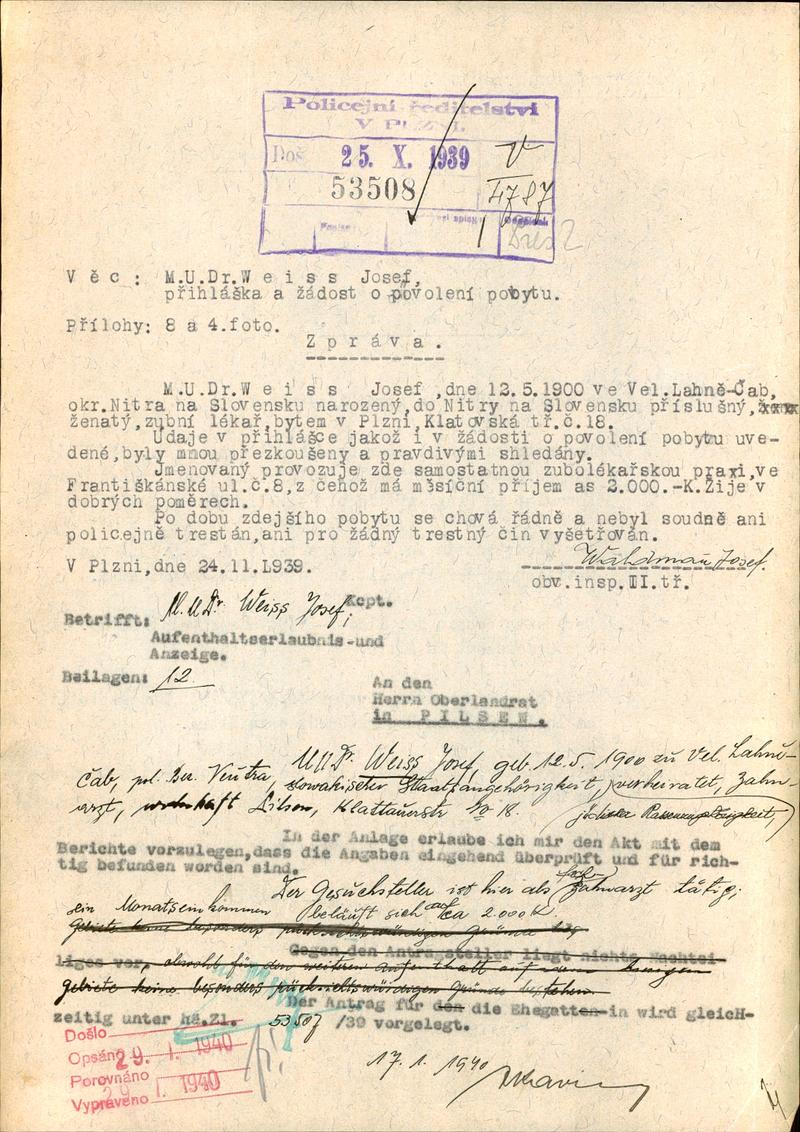 Policejní ředitelství
V Plzni.
Doš. 25. X. 1939 V
53508 4787
1
V ě c : M.U.Dr.W e i s s Josef,
přihláška a žádost o povolení pobytu.
Přílohy: 8 a 4.foto.
Z p r á v a .
M.U.Dr.W e i s s Josef ,dne 12.5.1900 ve Vel.Lahně-Čab,
okr.Nitra na Slovensku narozený,do Nitry na Slovensku příslušný,
ženatý,zubní lékař,bytem v Plzni,Klatovská tř.č.18.
Údaje v přihlášce jakož i v žádosti o povolení pobytu uve-
dené,byly mnou přezkoušeny a pravdivými shledány.
Jmenovaný provozuje zde samostatnou zubolékařskou praxi,ve
Františkánské ul.č.8,z čehož má měsíční příjem as 2.000.-K.Žije v
dobrých poměrech.
Po dobu zdejšího pobytu se chová řádně a nebyl soudně ani
policejně trestán,ani pro žádný trestný čin vyšetřován.
V Plzni,dne 24.11.1939. Waldman Josef.
obv.insp.II.tř.
Betrifft: M.U.Dr. Weiss Josef, Kcpt.
Aufenthaltserlaubnis-und
Anzeige.
Beilagen: 12
An den
Herrn Oberlandrat
in P I L S E N .
MUDr. Weiss Josef, geb. 12.5.1900 zu Vel. Lahně-
Čab, pol. Bez. Neutra, slowakischer Staatsangehörigkeit, verheiratet, Zahn-
arzt, wohnhaft Pilsen, Klattauerstr No 18. jüdischer Rassenzugehörigkeit,
In der Anlage erlaube ich mir den Akt mit dem
Berichte vorzulegen,dass die Angaben eingehend überprüft und für rich-
tig befunden worden sind.
Der Gesuchsteller ist hier als Zahnarzt tätig;
sein Monatseinkommen beläuft sich auf ca 2.000 K.
gebiete keine besonders rücksichtswürdigen Gründe
Gegen den Antragsteller liegt nichts Nachtei-
liges vor, obwohl für den weiteren Aufenthalt auf
gebiete keine besonders rücksichtswürdigen Gründe bestehen.
Der Antrag für den die Ehegatten-in wird gleich-
zeitig unter hä.Zl. 53507 /39 vorgelegt.
Došlo
Opsáno 29. 1. 1940
Porovnáno
Vypraveno 29 1. 1940
17.1.1940